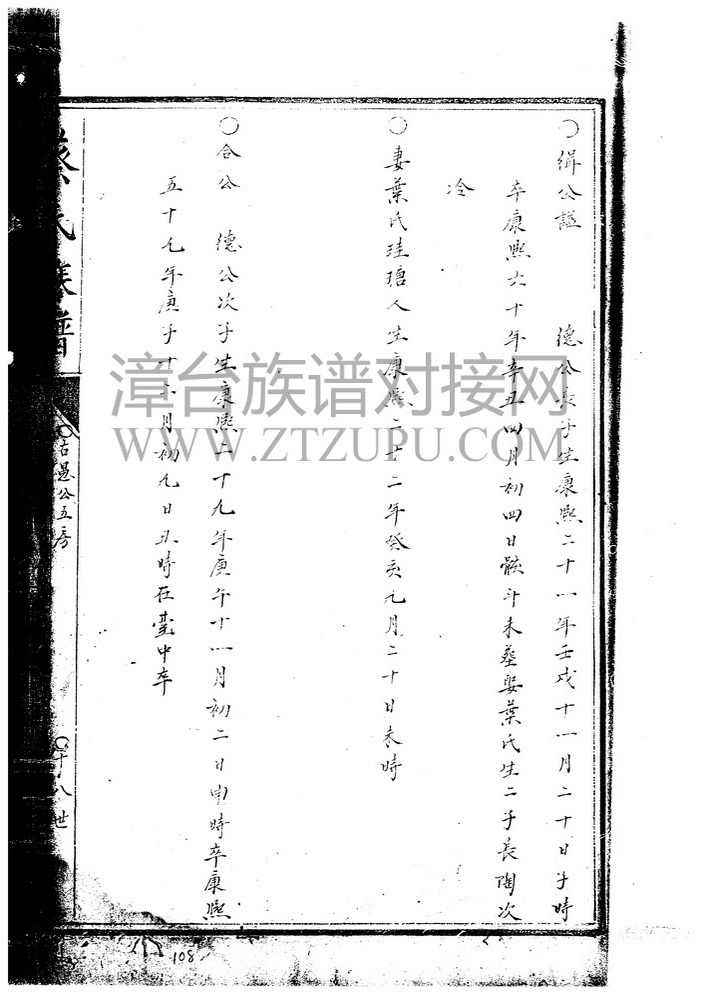 ○緝公諡　德公長子生康熙二十一年壬戌十一月二十日子時
卒康熙六十年辛丑四月初四日骸斗未塟娶葉氏生二子長陶次
冷
○妻葉氏珪瑭人生康熙二十二年癸亥九月二十日未時
○合公　德公次子生康熙二十九年庚午十一月初二日申時卒康熙
五十九年庚子十二月初九日丑時在臺中卒
氏族譜
○古愚公五房
○十八世
漳台族谱对接网
WWW.ZTZUPU.COM
108